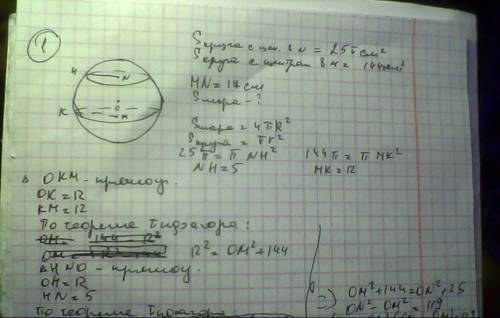 1
S круга с цен. в N = 25π см²
S круга с центром в M = 144π см²
MN = 17 см
S шара - ?
S шара = 4πR²
S круга = πr²
25π = π NH² 144π = π MK²
NH = 5 MK = 12
H N
O
K M
Δ OKM - прямоуг.
OK = R
KM = 12
По теореме Пифагора:
R² = OM² + 144
ΔHNO - прямоуг.
OH = R
HN = 5
По теореме Пифагора
=> OM² + 144 = ON² + 25
ON² - OM² = 119